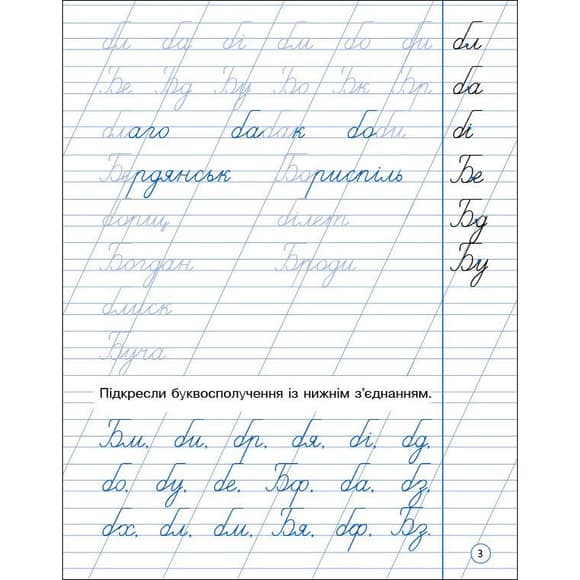 бл ба бі бм бо би бл
Бе Бд Бу Бо Бк Бр ба
благо бабак боби бі
Бердянськ Бориспіль Бе
борщ білет Бд
Богдан Броди Бу
блиск
Буча
Підкресли буквосполучення із нижнім з'єднанням.
Бм, би, бр, бя, бі, бд,
бо, бу, бе, Бф, ба, бз,
бх, бл, бм, Бя, бф, Бз.
3